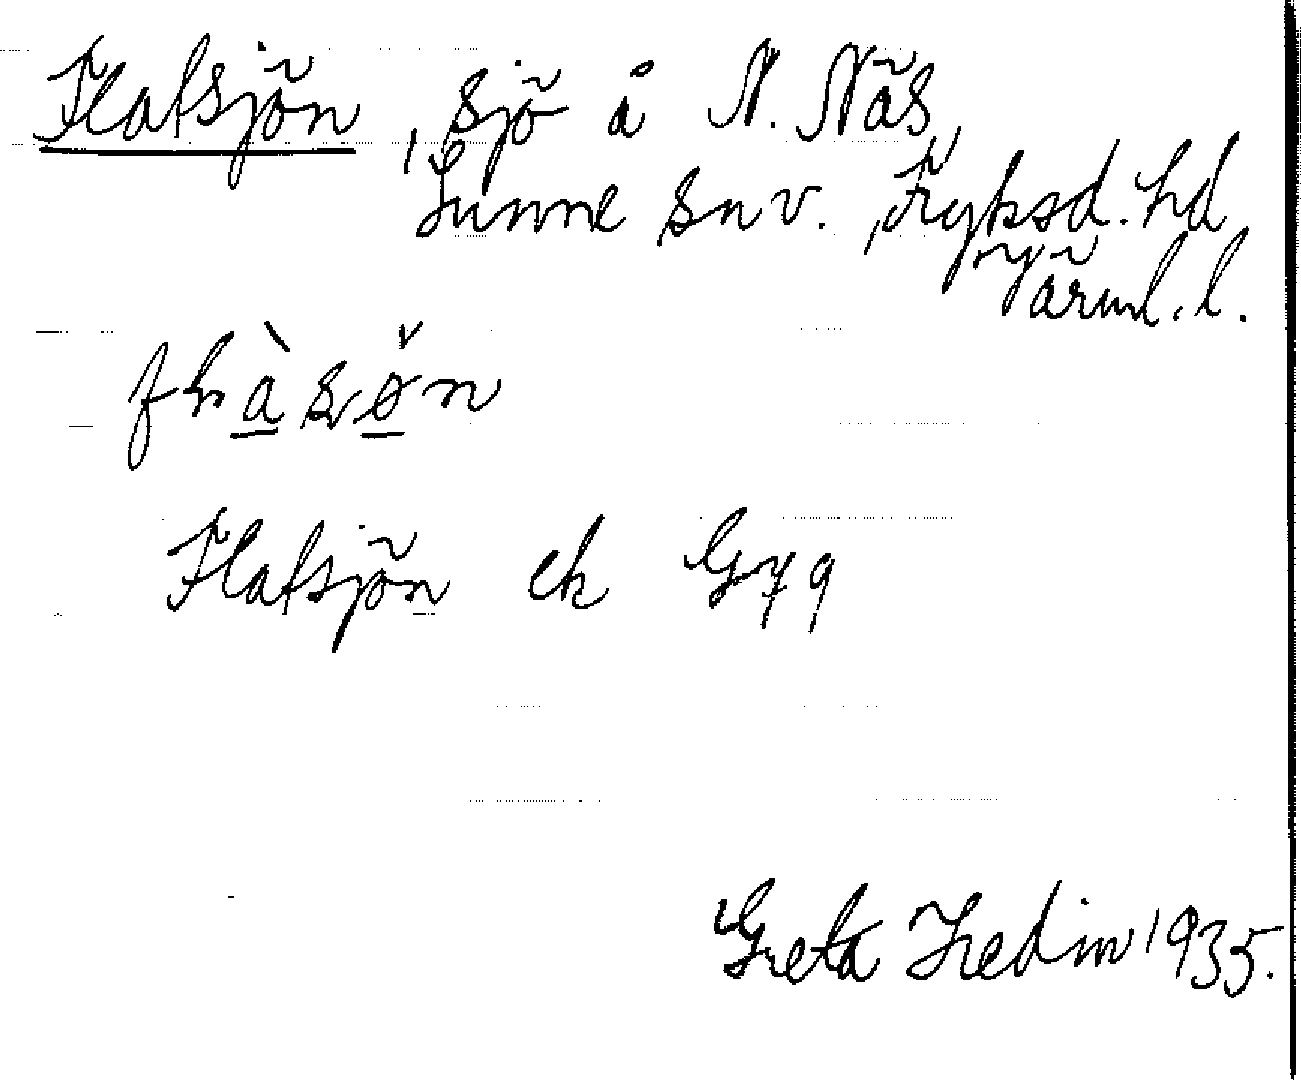 Flatsjön, sjö å N. Näs,
Sunne snv., Fryksd. hd
Värml. l.
Flatsjön ek G 79
Greta Hedin 1935.